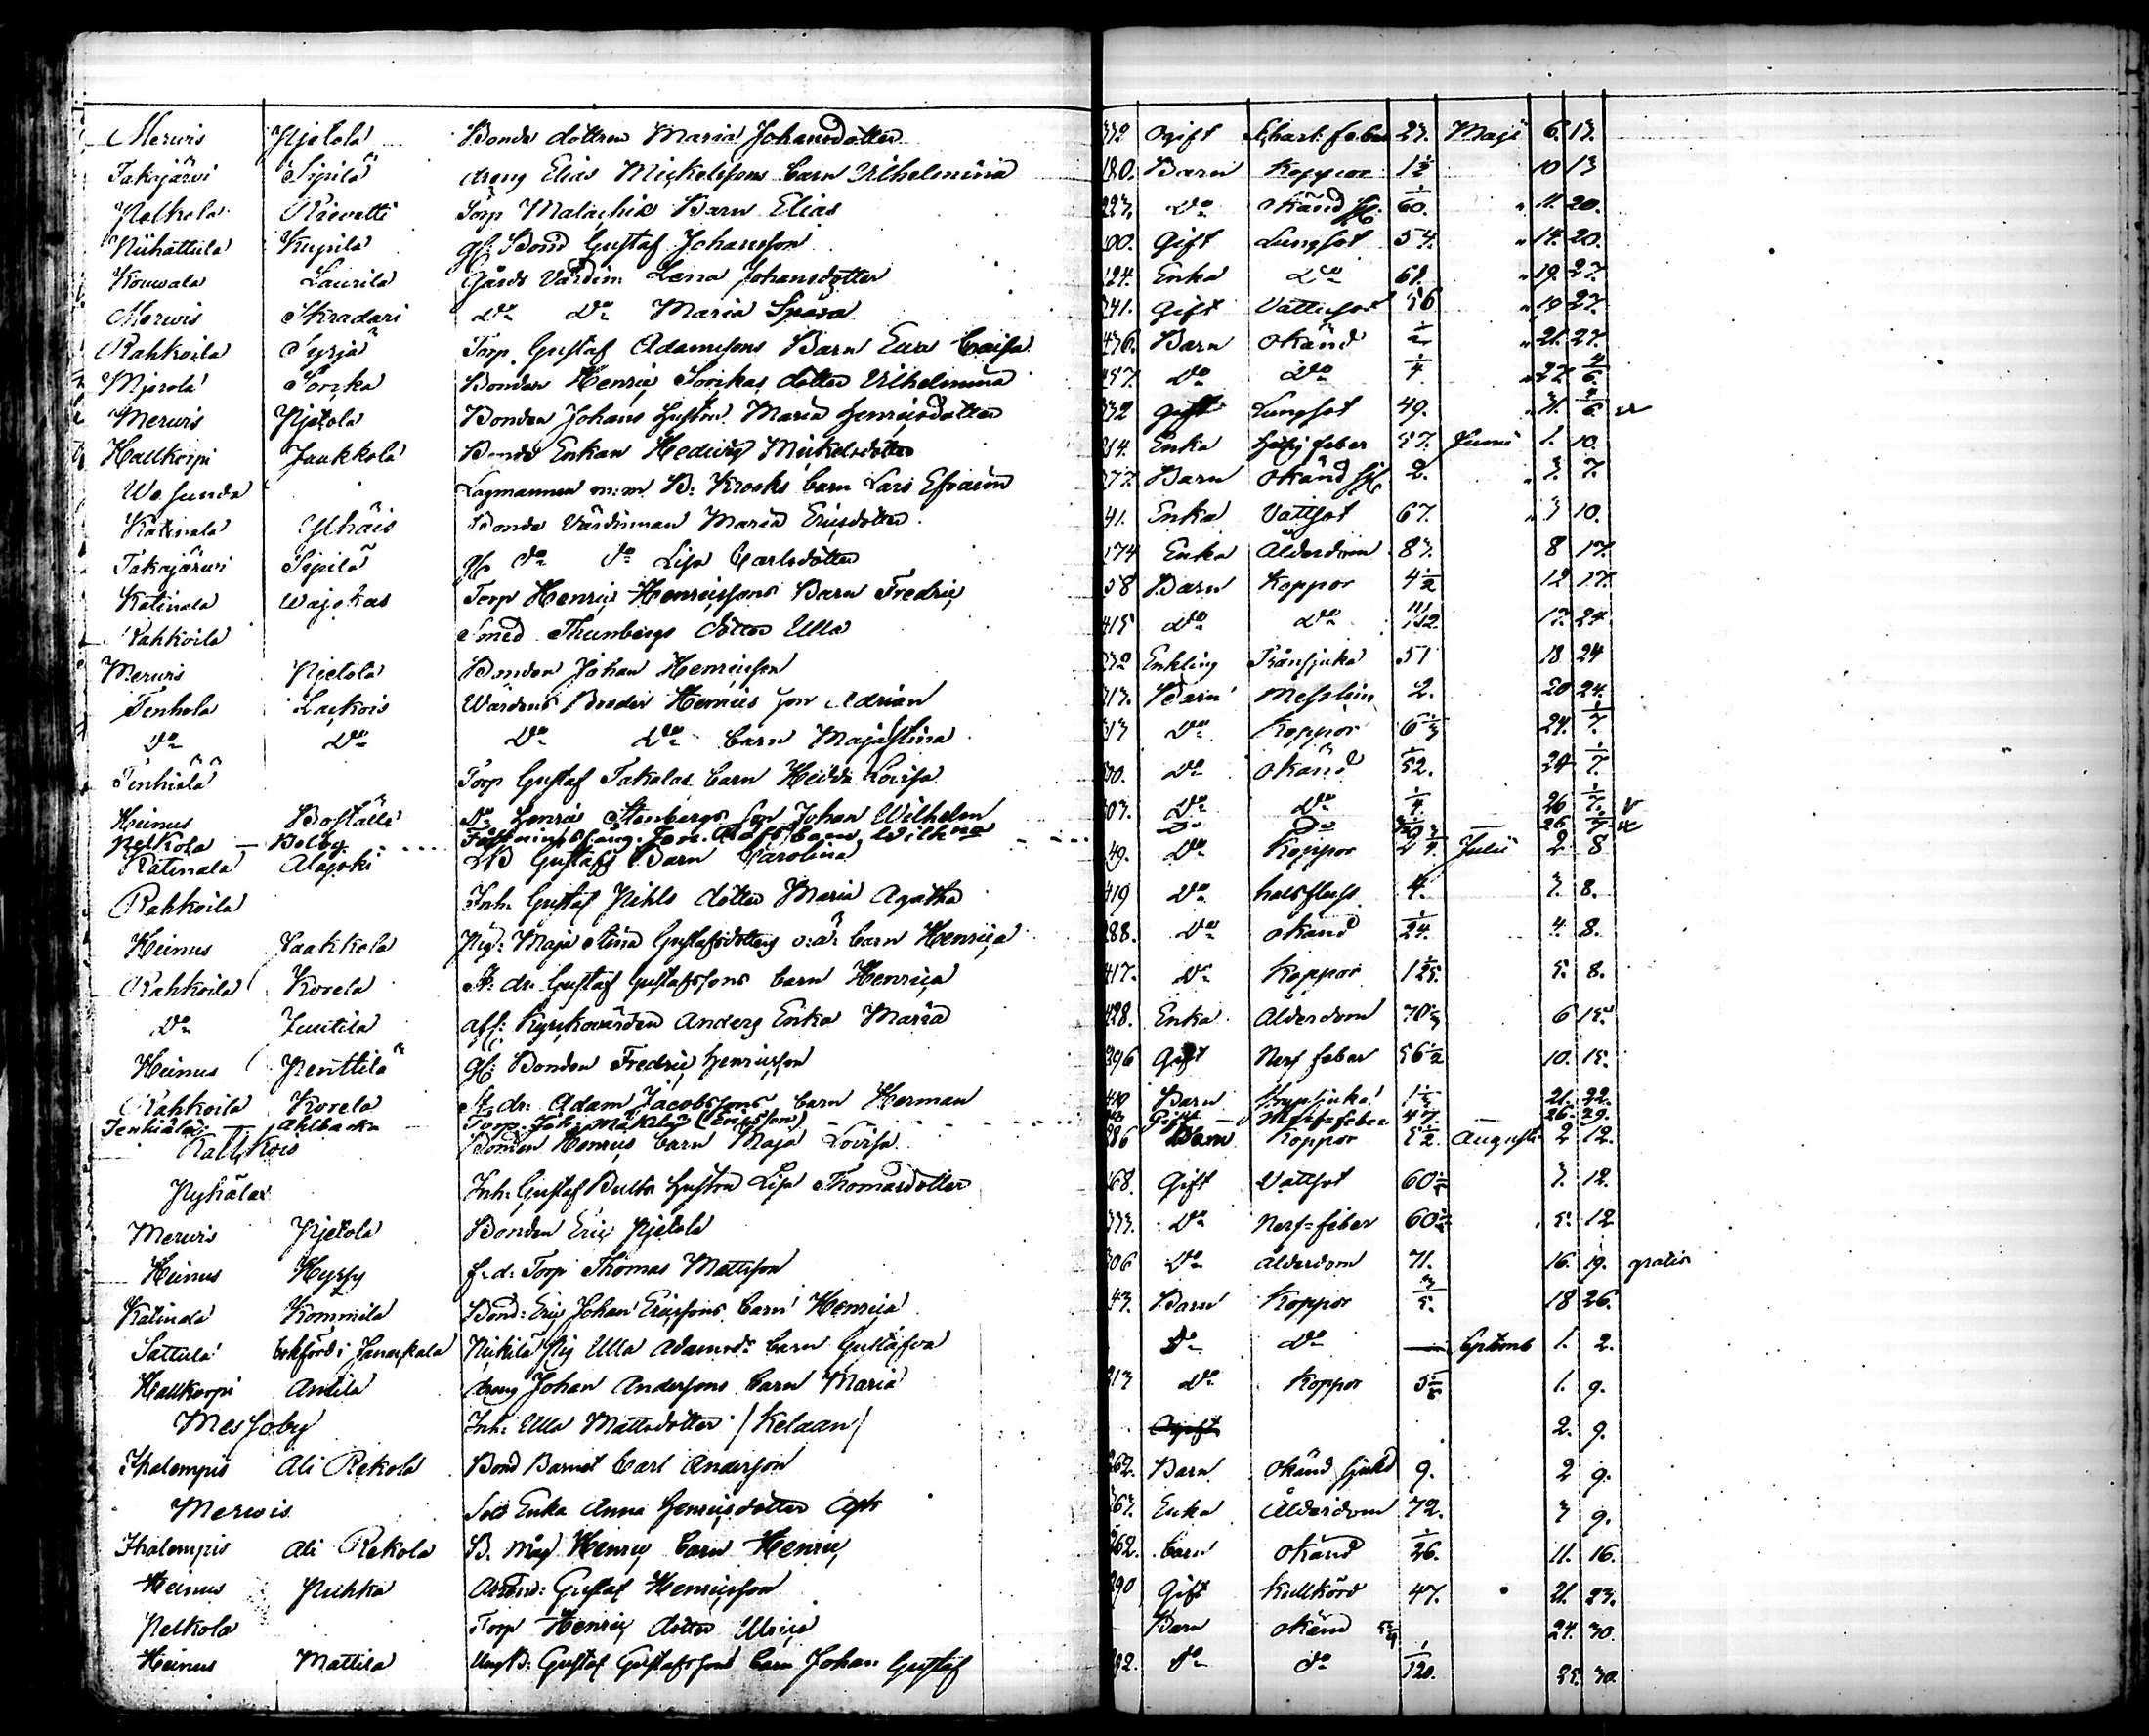 Merwis Pjetola Bonde dottren Maria Johansdotter 332 Ogift Skharl. feber 23. Maji 6. 13.
Takajärvi Sipilä dreng Elias Mickelssons barn Wilhelmina 180. Barn Koppor 1½ 10 13
Pelkola Kievetti Torp Malachias Barn Elias 223. Do okänd sj. 1/60. " 11. 20.
Niihattula Kupila gf. Bond Gustaf Johansson 00. Gift Lungsot 54. " 14. 20.
Kouwala Laurila Gårds Värdin Lena Johansdotter 124. Enka Do 68. " 19. 27.
Merwis Skradari Do Do Maria Spåra 341. Gift Vattusot 56 " 19 27.
Rahkoila Syrjä Torp. Gustaf Adamssons Barn Ewa Caisa 436. Barn Okänd ½ " 21. 27.
Mierola Sorcka Bonden Henric Sorckas dotter Wilhelmina 457. Do Do ¼ " 27. 4/6.
Merwis Pjetola Bonden Johans hustru Maria Henricsdotter 332 gift Lungsot 49. " 31. 6
Hattkorpi Jaakkola Bonde Enkan Hedwig Mickelsdotter 214. Enka Hetsig feber 57. Junii 1. 10.
Wesunda Lagmannen m.m. B. Krooks barn Lars Efraim 277. Barn Okänd sj. 2. " 3. 7.
Katinala Ylhäis Bonde Värdinnan Maria Ericsdotter. 41. Enka Vattsot 67. " 3 10.
Takajärwi Sipilä gf. Do Do Lisa Carlsdotter 174 Enka Ålderdom 83. 8 17.
Katinala Wajokas Torp Henric Henricssons Barn Fredric 58 Barn Koppor 4½ 12 17.
Rahkoila Smed Thunbergs dotter Ulla 415 Do Do 11/12. 17. 24.
Merwis Pjetola Bonden Johan Henricsson 332 Enkling Trånsjuka 51 18 24
Tenhola Lackois Wärdens Broder Henrics son Adrian 313. Barn Messlin 2. 20 24.
Do Do Do Do barn Maja Stina 313 Do Koppor 6 1/3 24. 1/7.
Tenhiälä Torp Gustaf Takalas barn Hedda Lovisa 00. Do Okänd 1/52. 24 1/7.
Heinus Boställe Do Henric Stenbergs son Johan Wilhelm 303. Do Do ¼. 26 1/7.
Pelkola — Bolby Wilhna Do Do 26
Katinala Alajoki Gustafs Barn Carolina 49. Do Koppor 2 ¾. Julii 2. 8
Rahkoila Inh. Gustaf Pihls dotter Maria Agatha 419 Do halsfluss 4. 3. 8.
Heinus Jaakkola Pig: Maja Stina Gustafsdotters o:ä: barn Henrica 288. Do Okänd 1/24. 4. 8.
Rahkoila Korela St. dr. Gustaf Gustafssons barn Henrica 417. Do Koppor 5. 8.
Do Juutila aff: Kyrkovärden Anders Enka Maria 428. Enka Ålderdom 6 15.
Heinus Penttilä gf: Bonden Fredric Henricsson 296 Gift Nerf feber 56½ 10. 15.
Rahkoila Korela St. dr. Adam Jacobssons barn Herman Barn 21. 22.
Tenhiälä — Ahlbacka Torp. Joh: Mäkilä (Ericsson) Gift Nerf=feber 47. 26. 29.
Rattkois Bonden Henrics barn Maja Lovisa 86 Barn Koppor 5½ Augusti 2 12.
Pyhälax Inh. Gustaf Bults hustru Lisa Thomasdotter 68. Gift Vattsot 60½ 3. 12.
Merwis Pjetola Bonden Eric Pjetola 333. Do Nerf=feber 5. 12
Heinus Hyrsy f. d. Torp Thomas Mattsson 306 Do Ålderdom 71. 16. 19. gratis
Katinala Kommila Bond: Eric Johan Ericssons barn Henrica 43. Barn Koppor 3/5. 18 26.
Sattula bokförd i Janackala Pig Ulla Adamsdr barn Gustafva Do Do — Septemb 1. 2.
Hattkorpi Anttila dreng Johan Anderssons barn Maria 213 Do Koppor 1. 9.
Messoby Inh. Ulla Mattsdotter /Kelaan/ Ogift 2. 9.
Ihalempis Ali Rekola Bond Barnet Carl Andersson 262. Barn Okänd sjukd 9. 2 9.
Merwis Sold Enka Anna Henricsdotter Ask 367. Enka Ålderdom 72. 3 9.
Ihalempis Ali Rekola B. Måg Henric barn Henric 262. barn Okänd 1/26. 11. 16.
Heinus Puhka Gustaf Henricsson 290 Gift Kullkörd 47. 21. 23.
Pelkola Torp Henric dotter Ulrica Barn Okänd 24. 30.
Heinus Mattila Ung B: Gustaf Gustafssons barn Johan Gustaf 292. Do Do 1/120. 25. 30.